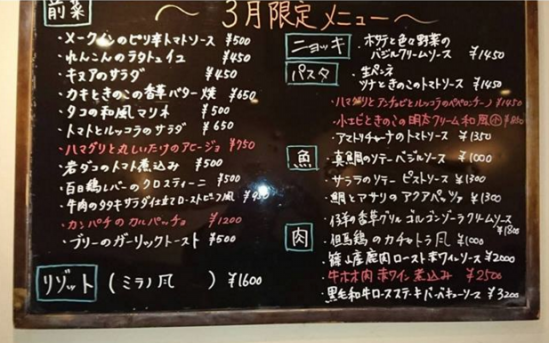 ～ 3月限定メニュー ～
前菜
・メークインのピリ辛トマトソース ¥500
・れんこんのラタトュイユ ¥450
・キヌアのサラダ ¥450
・カキときのこの香草バター焼 ¥650
・タコの和風マリネ ¥500
・トマトとルッコラのサラダ ¥650
・ハマグリと丸しいたけのアヒージョ ¥750
・岩ダコのトマト煮込み ¥500
・百日鶏レバーのクロスティーニ ¥500
・牛肉のタタキサラダ仕立てローストビーフ風 ¥950
・カンパチのカルパッチョ ¥1200
・ブリーのガーリックトースト ¥500
リゾット (ミラノ風 ) ¥1600
ニョッキ
・ホタテと色々野菜の
バジルクリームソース ¥1450
パスタ
・生パスタ
ツナときのこのトマトソース ¥1450
・ハマグリとアンチョビとルッコラのペペロンチーノ ¥1450
・小エビときのこの明太クリーム和風
・アマトリチャーナのトマトソース ¥1350
魚
・真鯛のソテー バジルソース ¥1000
・サワラのソテー ピストゥソース ¥1300
・鯛とアサリのアクアパッツァ ¥1300
肉
・仔羊の香草グリル ゴルゴンゾーラクリームソース ¥1800
・但馬鶏のカチャトラ風 ¥1000
・篠山産鹿肉ロースト 赤ワインソース ¥2000
・牛ホホ肉 赤ワイン煮込み ¥2500
・黒毛和牛ロースステーキ バーベキューソース ¥3200